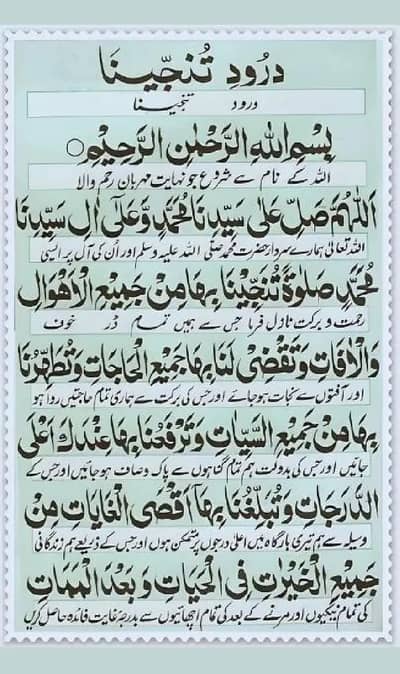 درُودِ تُنجّینا
درود تنجینا
بِسْمِ اللّٰهِ الرَّحْمٰنِ الرَّحِیْمِ
اللہ کے نام سے شروع جو نہایت مہربان رحم والا
اَللّٰهُمَّ صَلِّ عَلٰی سَیِّدِنَا مُحَمَّدٍ وَّعَلٰٓی اٰلِ سَیِّدِنَا
اللہ تعالٰی ہمارے سردار حضرت محمد صلی اللہ علیہ وسلم اور اُن کی آل پر ایسی
مُحَمَّدٍ صَلٰوةً تُنَجِّیْنَا بِهَا مِنْ جَمِیْعِ الْاَهْوَالِ
رحمت و برکت نازل فرما جس سے ہمیں تمام ڈر خوف
وَالْاٰفَاتِ وَتَقْضِیْ لَنَا بِهَا جَمِیْعَ الْحَاجَاتِ وَتُطَهِّرُنَا
اور آفتوں سے نجات ہو جائے اور جس کی برکت سے ہماری تمام حاجتیں روا ہو
بِهَا مِنْ جَمِیْعِ السَّیِّاٰتِ وَتَرْفَعُنَا بِهَا عِنْدَكَ اَعْلَی
جائیں اور جس کی بدولت ہم تمام گناہوں سے پاک وصاف ہو جائیں اور جس کے
الدَّرَجَاتِ وَتُبَلِّغُنَا بِهَآ اَقْصَی الْغَایَاتِ مِنْ
وسیلہ سے ہم تیری بارگاہ میں اعلٰی درجوں پر متمکن ہوں اور جس کے ذریعے ہم زندگانی
جَمِیْعِ الْخَیْرٰتِ فِی الْحَیَاتِ وَبَعْدَ الْمَمَاتِ
کی تمام نیکیوں اور مرنے کے بعد کی تمام اچھائیوں سے بدرجہ غایت فائدہ حاصل کریں